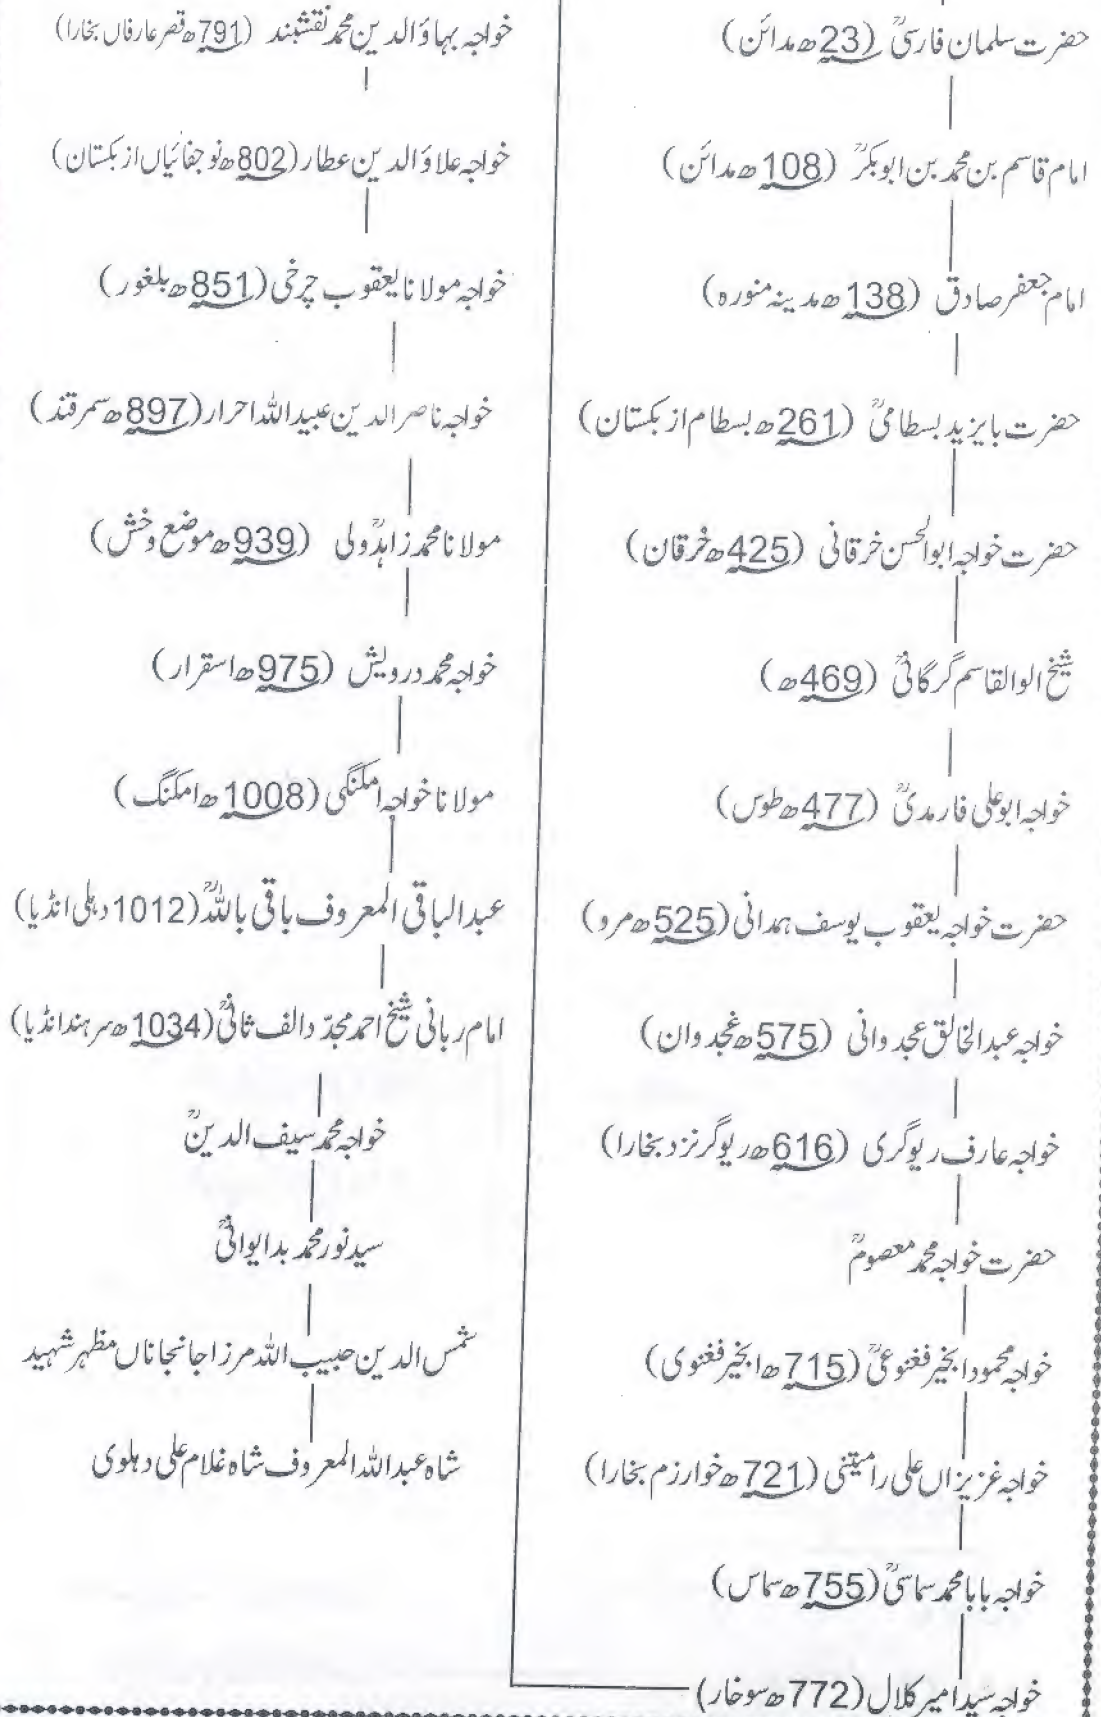 حضرت سلمان فارسیؒ (23ھ مدائن)
امام قاسم بن محمد بن ابوبکرؒ (108ھ مدائن)
امام جعفر صادق (138ھ مدینہ منورہ)
حضرت بایزید بسطامیؒ (261ھ بسطام ازبکستان)
حضرت خواجہ ابوالحسن خرقانی (425ھ خرقان)
شیخ الوالقاسم گرگانیؒ (469ھ)
خواجہ ابوعلی فارمدیؒ (477ھ طوس)
حضرت خواجہ یعقوب یوسف ہمدانی (525ھ مرو)
خواجہ عبدالخالق عجدوانی (575ھ غجدوان)
خواجہ عارف ریوگری (616ھ ریوگر نزد بخارا)
حضرت خواجہ محمد معصومؒ
خواجہ محمود الخیر فغنوعیؒ (715ھ الخیر فغنوی)
خواجہ غزیزاں علی رامیتنی (721ھ خوارزم بخارا)
خواجہ بابا محمد سماسیؒ (755ھ سماس)
خواجہ سید امیر کلال (772ھ سوخار)
خواجہ بہاؤالدین محمد نقشبند (791ھ قصر عارفاں بخارا)
خواجہ علاؤالدین عطار (802ھ نوجفائیاں ازبکستان)
خواجہ مولانا یعقوب چرخی (851ھ بلغور)
خواجہ ناصرالدین عبیداللہ احرار (897ھ سمرقند)
مولانا محمد زاہدؒ ولی (939ھ موضع وخش)
خواجہ محمد درویش (975ھ اسقرار)
مولانا خواجہ امکنگی (1008ھ امکنگ)
عبدالباقی المعروف باقی باللہؒ (1012 دہلی انڈیا)
امام ربانی شیخ احمد مجدّد الف ثانیؒ (1034ھ سرہند انڈیا)
خواجہ محمد سیف الدینؒ
سید نور محمد بدایوانیؒ
شمس الدین حبیب اللہ مرزا جانجاناں مظہر شہید
شاہ عبداللہ المعروف شاہ غلام علی دہلوی